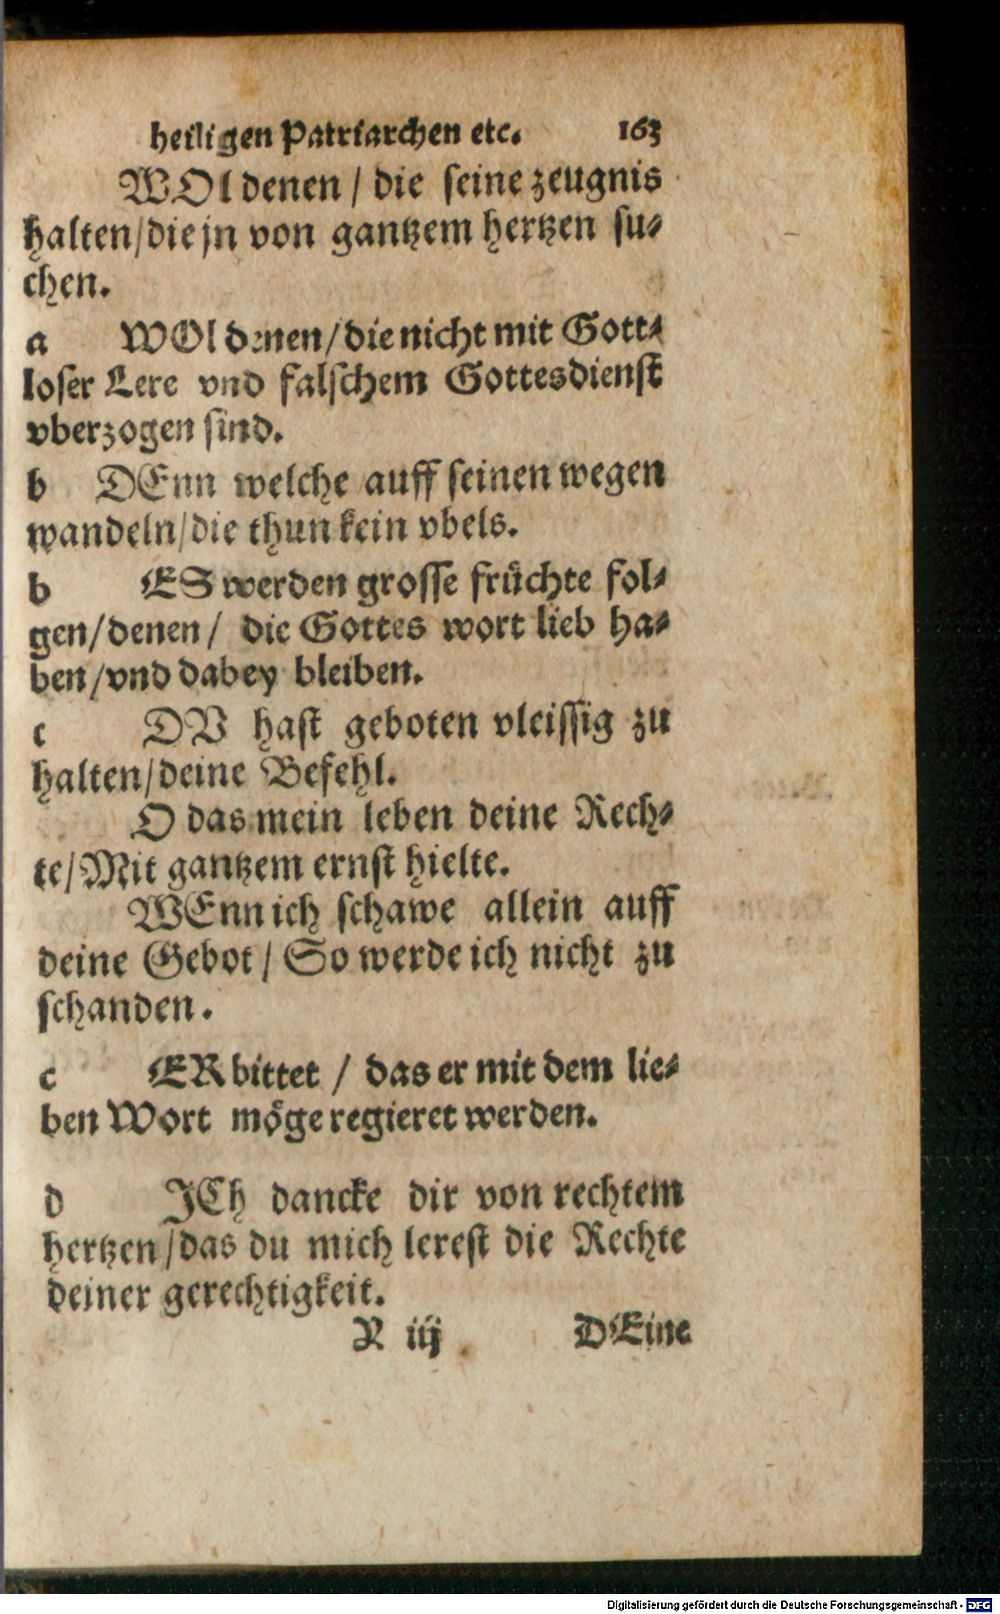 heiligen Patriarchen etc. 163
WOl denen / die seine zeugnis
halten/die jn von gantzem hertzen su-
chen.
a WOl denen/die nicht mit Gott-
loser Lere vnd falschem Gottesdienst
vberzogen sind.
b DEnn welche auff seinen wegen
wandeln/die thun kein vbels.
b ES werden grosse früchte fol-
gen/denen / die Gottes wort lieb ha-
ben/vnd dabey bleiben.
c DV hast geboten vleissig zu
halten/deine Befehl.
O das mein leben deine Rech-
te/Mit gantzem ernst hielte.
WEnn ich schawe allein auff
deine Gebot / So werde ich nicht zu
schanden.
c ER bittet / das er mit dem lie-
ben Wort möge regieret werden.
d ICh dancke dir von rechtem
hertzen/das du mich lerest die Rechte
deiner gerechtigkeit.
X iij DEine
Digitalisierung gefördert durch die Deutsche Forschungsgemeinschaft - DFG